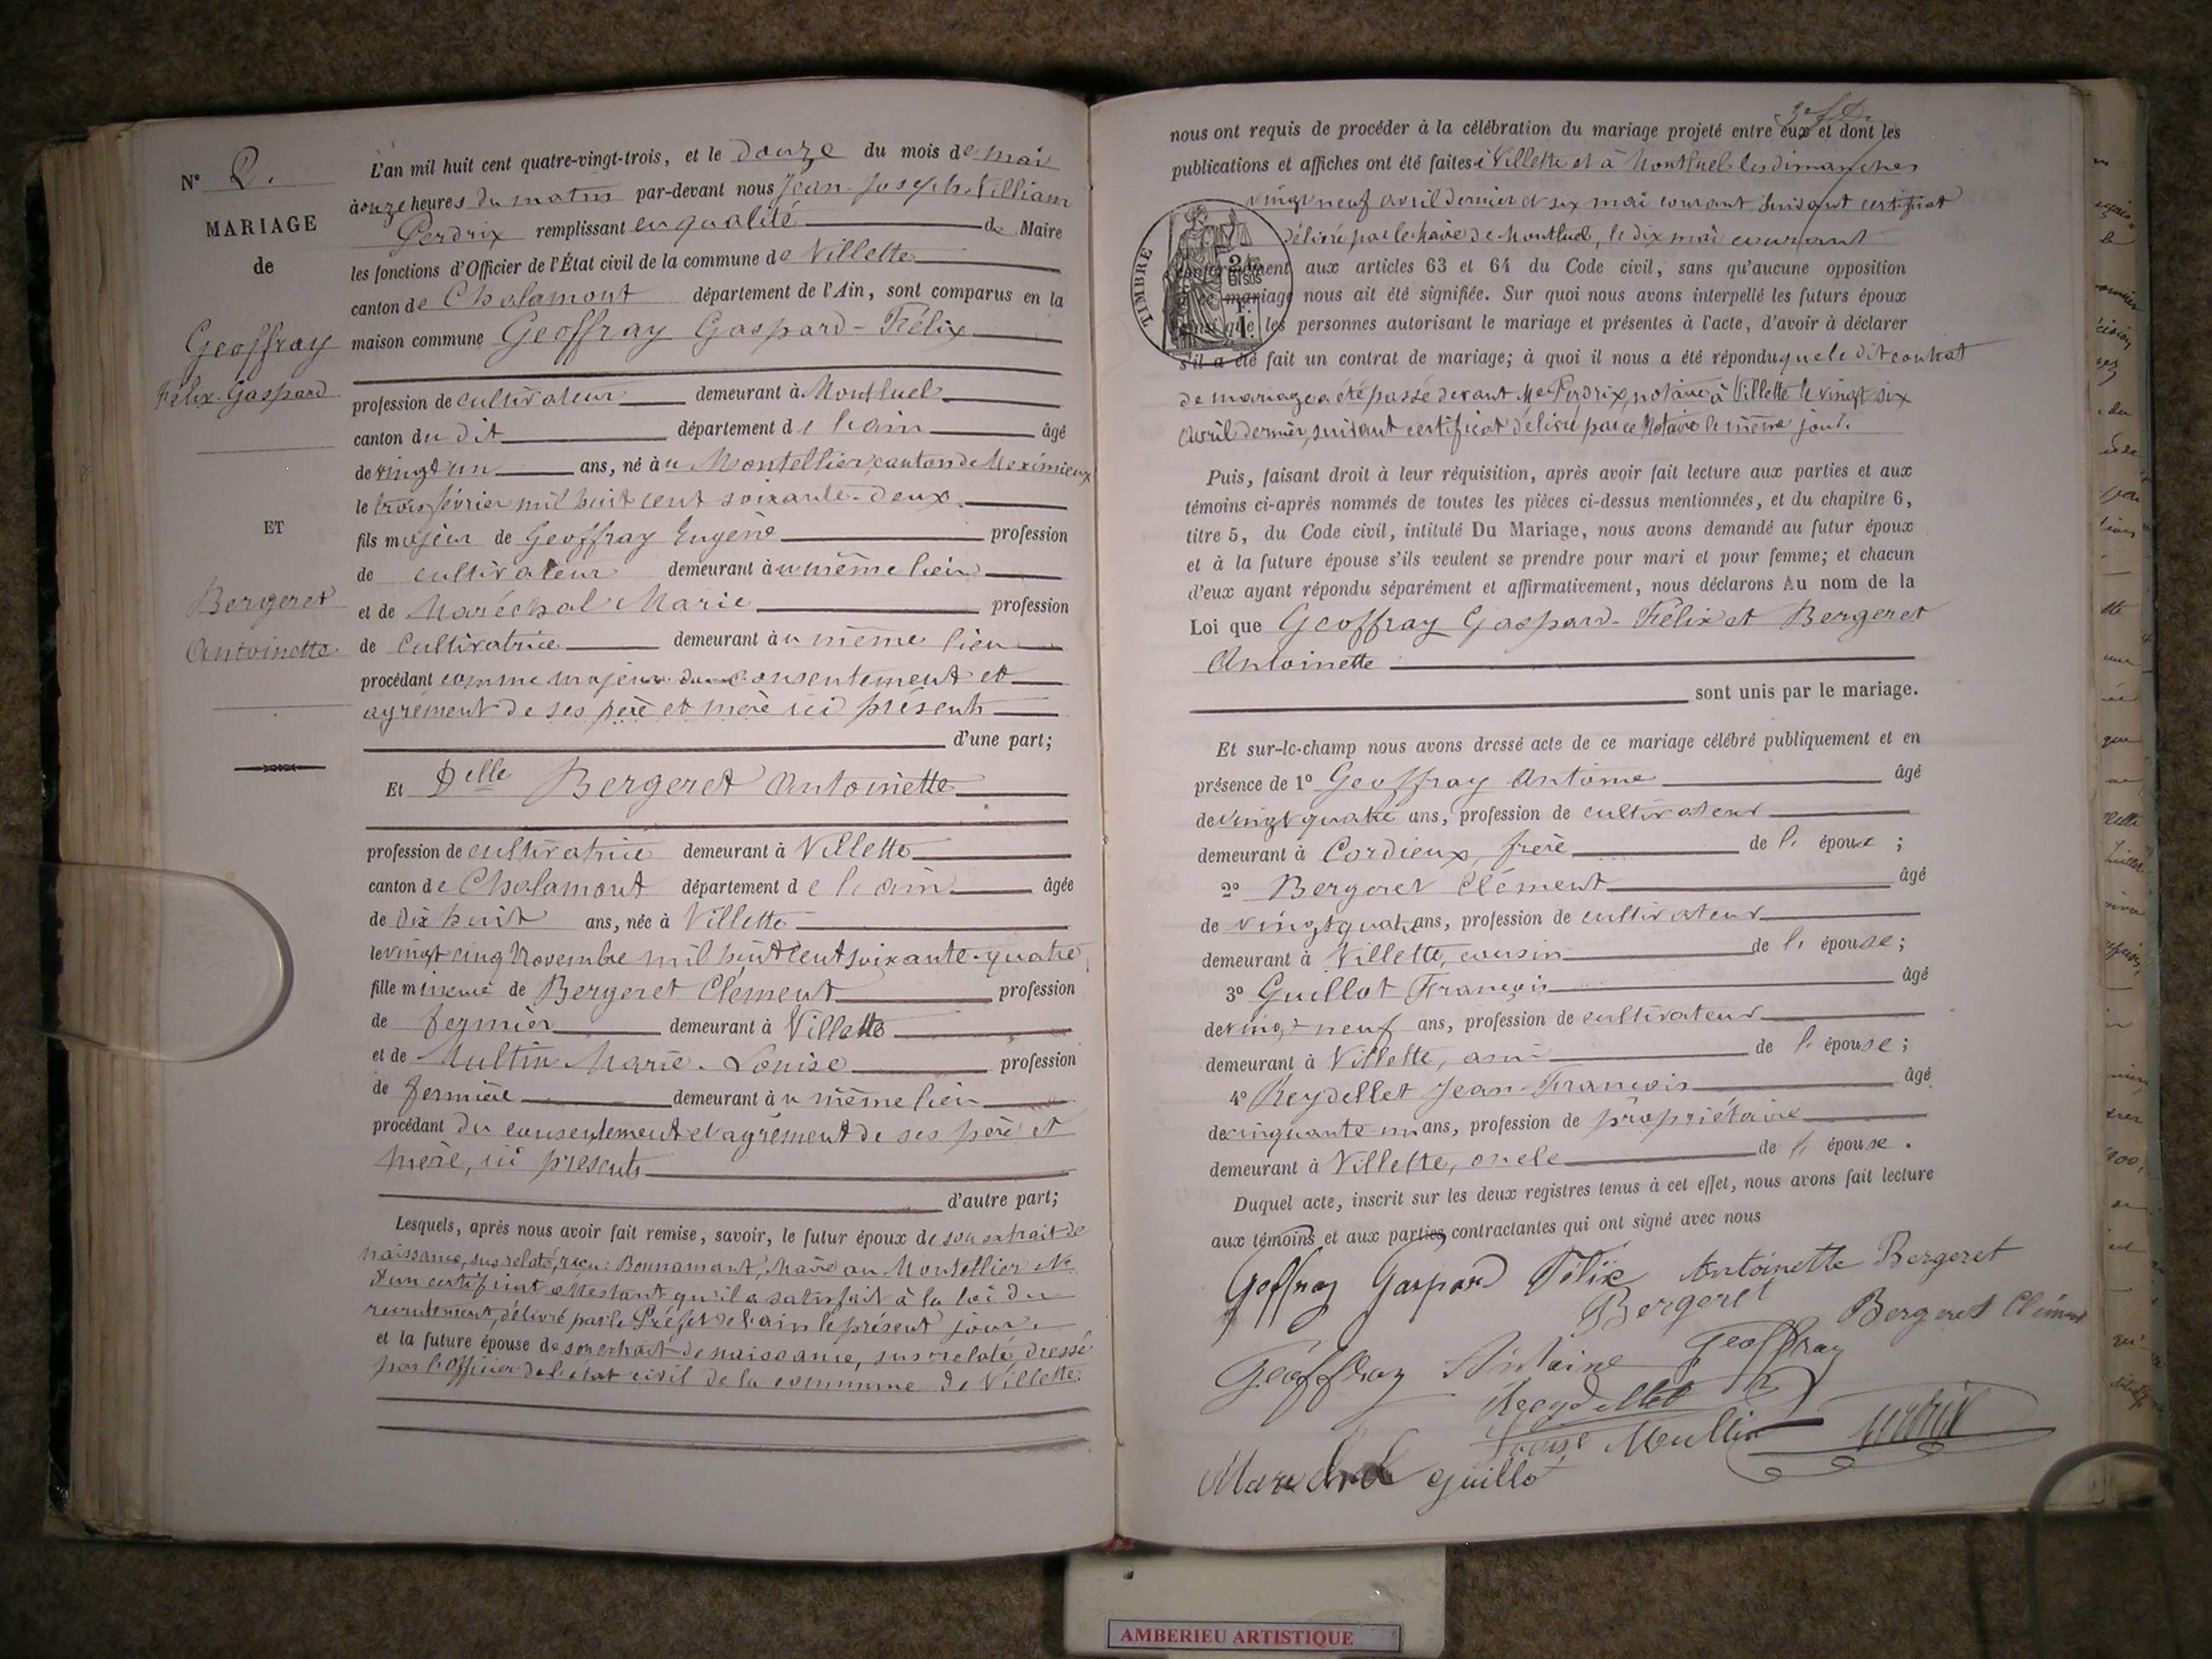 N° 2.
MARIAGE
de
Geoffray
Félix-Gaspard
ET
Bergeret
Antoinette
L'an mil huit cent quatre-vingt-trois, et le douze du mois de mai
à onze heures du matin par-devant nous Jean-Joseph-William
Perdrix remplissant en qualité de Maire
les fonctions d'Officier de l'État civil de la commune de Villette
canton de Chalamont département de l'Ain, sont comparus en la
maison commune Geoffray Gaspard-Félix
profession de cultivateur demeurant à Montluel
canton du dit département de l'ain âgé
de vingt un ans, né au Montellier, canton de Meximieux
le trois février mil huit cent soixante-deux.
fils majeur de Geoffray Eugène profession
de cultivateur demeurant au même lieu
et de Maréchal Marie profession
de Cultivatrice demeurant au même lieu
procédant comme majeur du consentement et
agrément de ses père et mère ici présents
d'une part;
Et Delle Bergeret Antoinette
profession de cultivatrice demeurant à Villette
canton de Chalamont département de l'ain âgée
de dix huit ans, née à Villette
le vingt cinq Novembre mil huit cent soixante-quatre
fille mineure de Bergeret Clément profession
de fermier demeurant à Villette
et de Multin Marie-Louise profession
de fermière demeurant au même lieu
procédant du consentement et agrément de ses père et
mère, ici présents
d'autre part;
Lesquels, après nous avoir fait remise, savoir, le futur époux de son extrait de
naissance, sus relaté, reçu: Bonnamant, Maire au Montellier
d'un certificat attestant qu'il a satisfait à la loi du
recrutement, délivré par le Préfet de l'ain le présent jour.
et la future épouse de son extrait de naissance, sus relaté dressé
par l'Officier de l'état civil de la commune de Villette.
nous ont requis de procéder à la célébration du mariage projeté entre eux et dont les
publications et affiches ont été faites à Villette et à Montluel les dimanches
vingt neuf avril dernier et six mai courant suivant certificat
délivré par le Maire de Montluel, le dix mai courant
conformément aux articles 63 et 64 du Code civil, sans qu'aucune opposition
mariage nous ait été signifiée. Sur quoi nous avons interpellé les futurs époux
ainsi que les personnes autorisant le mariage et présentes à l'acte, d'avoir à déclarer
s'il a été fait un contrat de mariage; à quoi il nous a été répondu que le dit contrat
de mariage a été passé devant Me Perdrix, notaire à Villette le vingt six
avril dernier, suivant certificat délivré par ce Notaire le même jour.
TIMBRE
Puis, faisant droit à leur réquisition, après avoir fait lecture aux parties et aux
témoins ci-après nommés de toutes les pièces ci-dessus mentionnées, et du chapitre 6,
titre 5, du Code civil, intitulé Du Mariage, nous avons demandé au futur époux
et à la future épouse s'ils veulent se prendre pour mari et pour femme; et chacun
d'eux ayant répondu séparément et affirmativement, nous déclarons Au nom de la
Loi que Geoffray Gaspard-Félix et Bergeret
Antoinette
sont unis par le mariage.
Et sur-le-champ nous avons dressé acte de ce mariage célébré publiquement et en
présence de 1° Geoffray Antoine âgé
de vingt quatre ans, profession de cultivateur
demeurant à Cordieux, frère de l' époux ;
2° Bergeret Clément âgé
de vingt quatre ans, profession de cultivateur
demeurant à Villette, cousin de l' épouse;
3° Guillot François âgé
de vingt neuf ans, profession de cultivateur
demeurant à Villette, ami de l' épouse;
4° Reydellet Jean-François âgé
de cinquante un ans, profession de propriétaire
demeurant à Villette, oncle de l' épouse.
Duquel acte, inscrit sur les deux registres tenus à cet effet, nous avons fait lecture
aux témoins et aux parties contractantes qui ont signé avec nous
Geoffray Gaspard Félix Antoinette Bergeret
Bergeret Bergeret Clément
Geoffray Antoine Geoffray
Reydellet
Louise Multin Perdrix
Marechal Guillot
AMBERIEU ARTISTIQUE